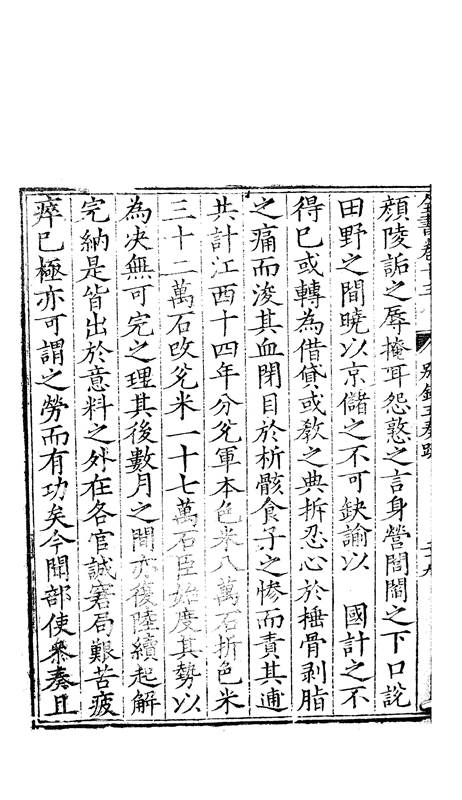 書卷十三　別錄五奏疏
顔陵詬之辱掩耳怨憝之言身營閭閻之下口說
田野之間曉以京儲之不可缺諭以　國計之不
得已或轉為借貸或敎之典拆忍心於捶骨剥脂
之痛而浚其血閉目於析骸食子之慘而責其逋
共計江西十四年分兊軍本色米八萬石折色米
三十二萬石改兊米一十七萬石臣始度其勢以
為决無可完之理其後數月之間亦復陸續起解
完納是皆出於意料之外在各官誠窘局艱苦疲
瘁已極亦可謂之勞而有功矣今聞部使叅奏且